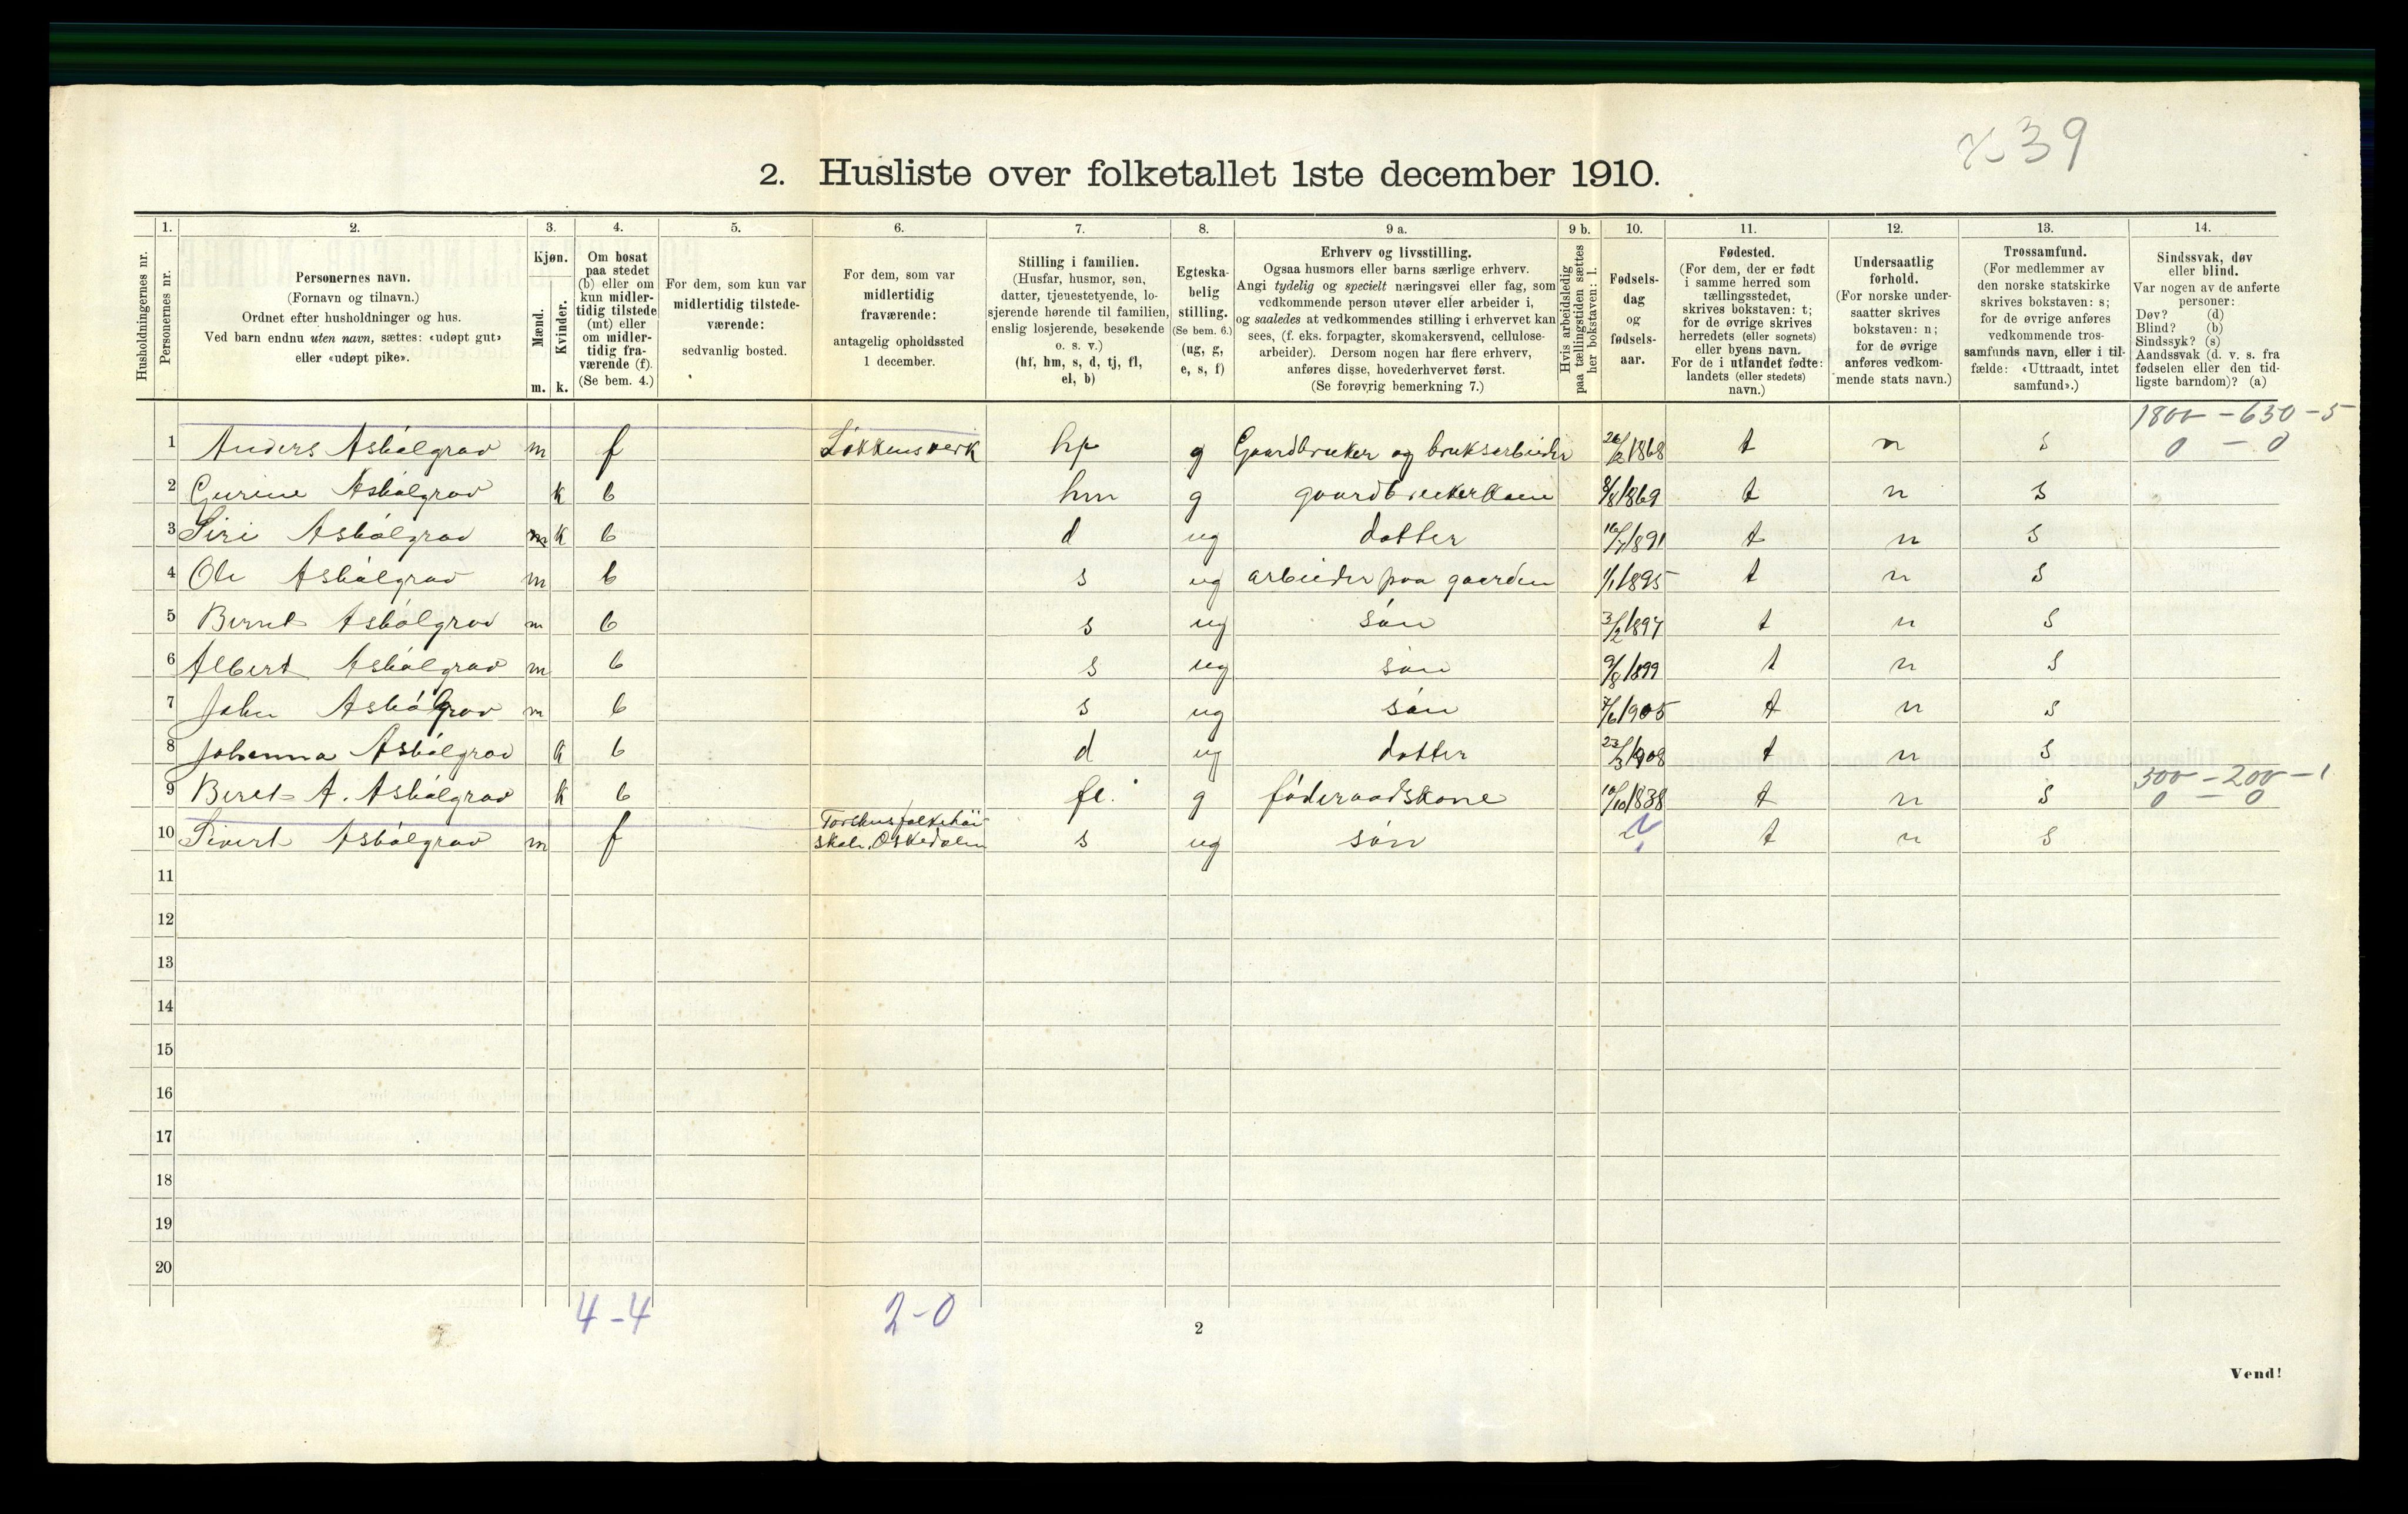 κ 39
2. Husliste over folketallet 1ste december 1910.
Husholdningernes nr.
1.
Personernes nr.
2.
Personernes navn.
(Fornavn og tilnavn.)
Ordnet efter husholdninger og hus.
Ved barn endnu uten navn, sættes: «udøpt gut»
eller «udøpt pike».
3.
Kjøn.
Mænd.
Kvinder.
m. k.
4.
Om bosat
paa stedet
(b) eller om
kun midler-
tidig tilstede
(mt) eller
om midler-
tidig fra-
værende (f).
(Se bem. 4.)
5.
For dem, som kun var
midlertidig tilstede-
værende:
sedvanlig bosted.
6.
For dem, som var
midlertidig
fraværende:
antagelig opholdssted
1 december.
7.
Stilling i familien.
(Husfar, husmor, søn,
datter, tjenestetyende, lo-
sjerende hørende til familien,
enslig losjerende, besøkende
o. s. v.)
(hf, hm, s, d, tj, fl,
el, b)
8.
Egteska-
belig
stilling.
(Se bem. 6.)
(ug, g,
e, s, f)
9 a.
Erhverv og livsstilling.
Ogsaa husmors eller barns særlige erhverv.
Angi tydelig og specielt næringsvei eller fag, som
vedkommende person utøver eller arbeider i,
og saaledes at vedkommendes stilling i erhvervet kan
sees, (f. eks. forpagter, skomakersvend, cellulose-
arbeider). Dersom nogen har flere erhverv,
anføres disse, hovederhvervet først.
(Se forøvrig bemerkning 7.)
9 b.
Hvis arbeidsledig
paa tællingstiden sættes
her bokstaven: l.
10.
Fødsels-
dag
og
fødsels-
aar.
11.
Fødested.
(For dem, der er født
i samme herred som
tællingsstedet,
skrives bokstaven: t;
for de øvrige skrives
herredets (eller sognets)
eller byens navn.
For de i utlandet fødte:
landets (eller stedets)
navn.)
12.
Undersaatlig
forhold.
(For norske under-
saatter skrives
bokstaven: n;
for de øvrige
anføres vedkom-
mende stats navn.)
13.
Trossamfund.
(For medlemmer av
den norske statskirke
skrives bokstaven: s;
for de øvrige anføres
vedkommende tros-
samfunds navn, eller i til-
fælde: «Uttraadt, intet
samfund».)
14.
Sindssvak, døv
eller blind.
Var nogen av de anførte
personer:
Døv? (d)
Blind? (b)
Sindssyk? (s)
Aandssvak (d. v. s. fra
fødselen eller den tid-
ligste barndom)? (a)
1800 - 650 - 5
1 Anders Asbølgrav m f Løkkens verk hf g Gaardbruker og bruksarbeider 26/2 1868 t n s 0 - 0
2 Gurine Asbølgrav k b hm g gaardbrukerkone 8/8 1869 t n s
3 Siri Asbølgrav m k b d ug datter 16/7 1891 t n s
4 Ole Asbølgrav m b s ug arbeider paa gaarden 1/1 1895 t n s
5 Bernt Asbølgrav m b s ug søn 3/2 1897 t n s
6 Albert Asbølgrav m b s ug søn 9/8 1899 t n s
7 John Asbølgrav m b s ug søn 7/6 1905 t n s
8 Johanna Asbølgrav k b d ug datter 23/3 1908 t n s
500 - 200 - 1
9 Beret A. Asbølgrav k b fl. g føderaadskone 10/10 1838 t n s 0 - 0
Torshus folkehøi
10 Sivert Asbølgrav m f skole, Orkedalen s ug søn t n s
11
12
13
14
15
16
17
18
19
20
4 - 4
2 - 0
2
Vend!